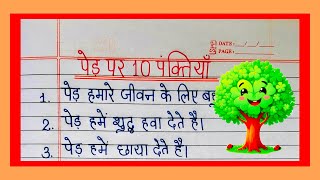 DATE: / /
PAGE:
पेड़ पर 10 पंक्तियाँ
1. पेड़ हमारे जीवन के लिए
2. पेड़ हमें शुद्ध हवा देते है।
3. पेड़ हमें छाया देते है।